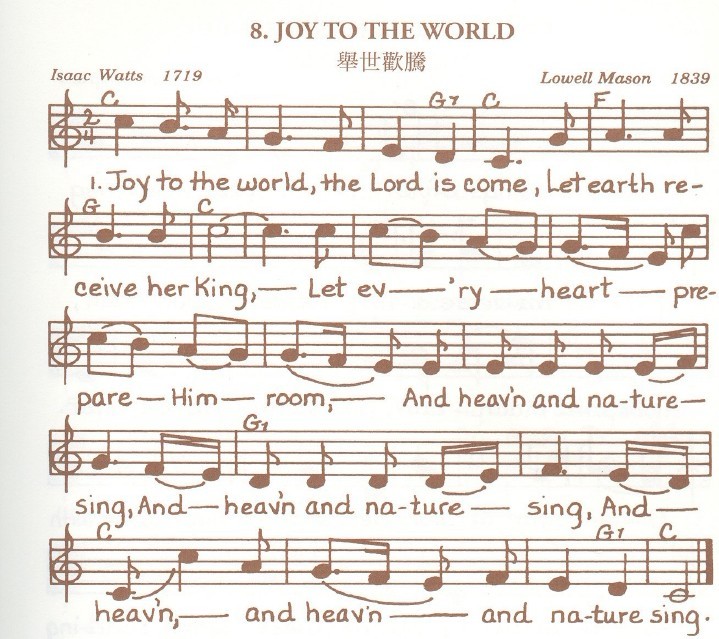 8. JOY TO THE WORLD
舉世歡騰
Isaac Watts 1719 Lowell Mason 1839
C G7 C F
2
4
1. Joy to the world, the Lord is come, Let earth re-
G C
ceive her King,— Let ev—'ry— heart— pre-
pare— Him— room,— And heav'n and na-ture—
G7
sing, And— heav'n and na-ture— sing, And—
C G7 C
heav'n,— and heav'n— and na-ture sing.